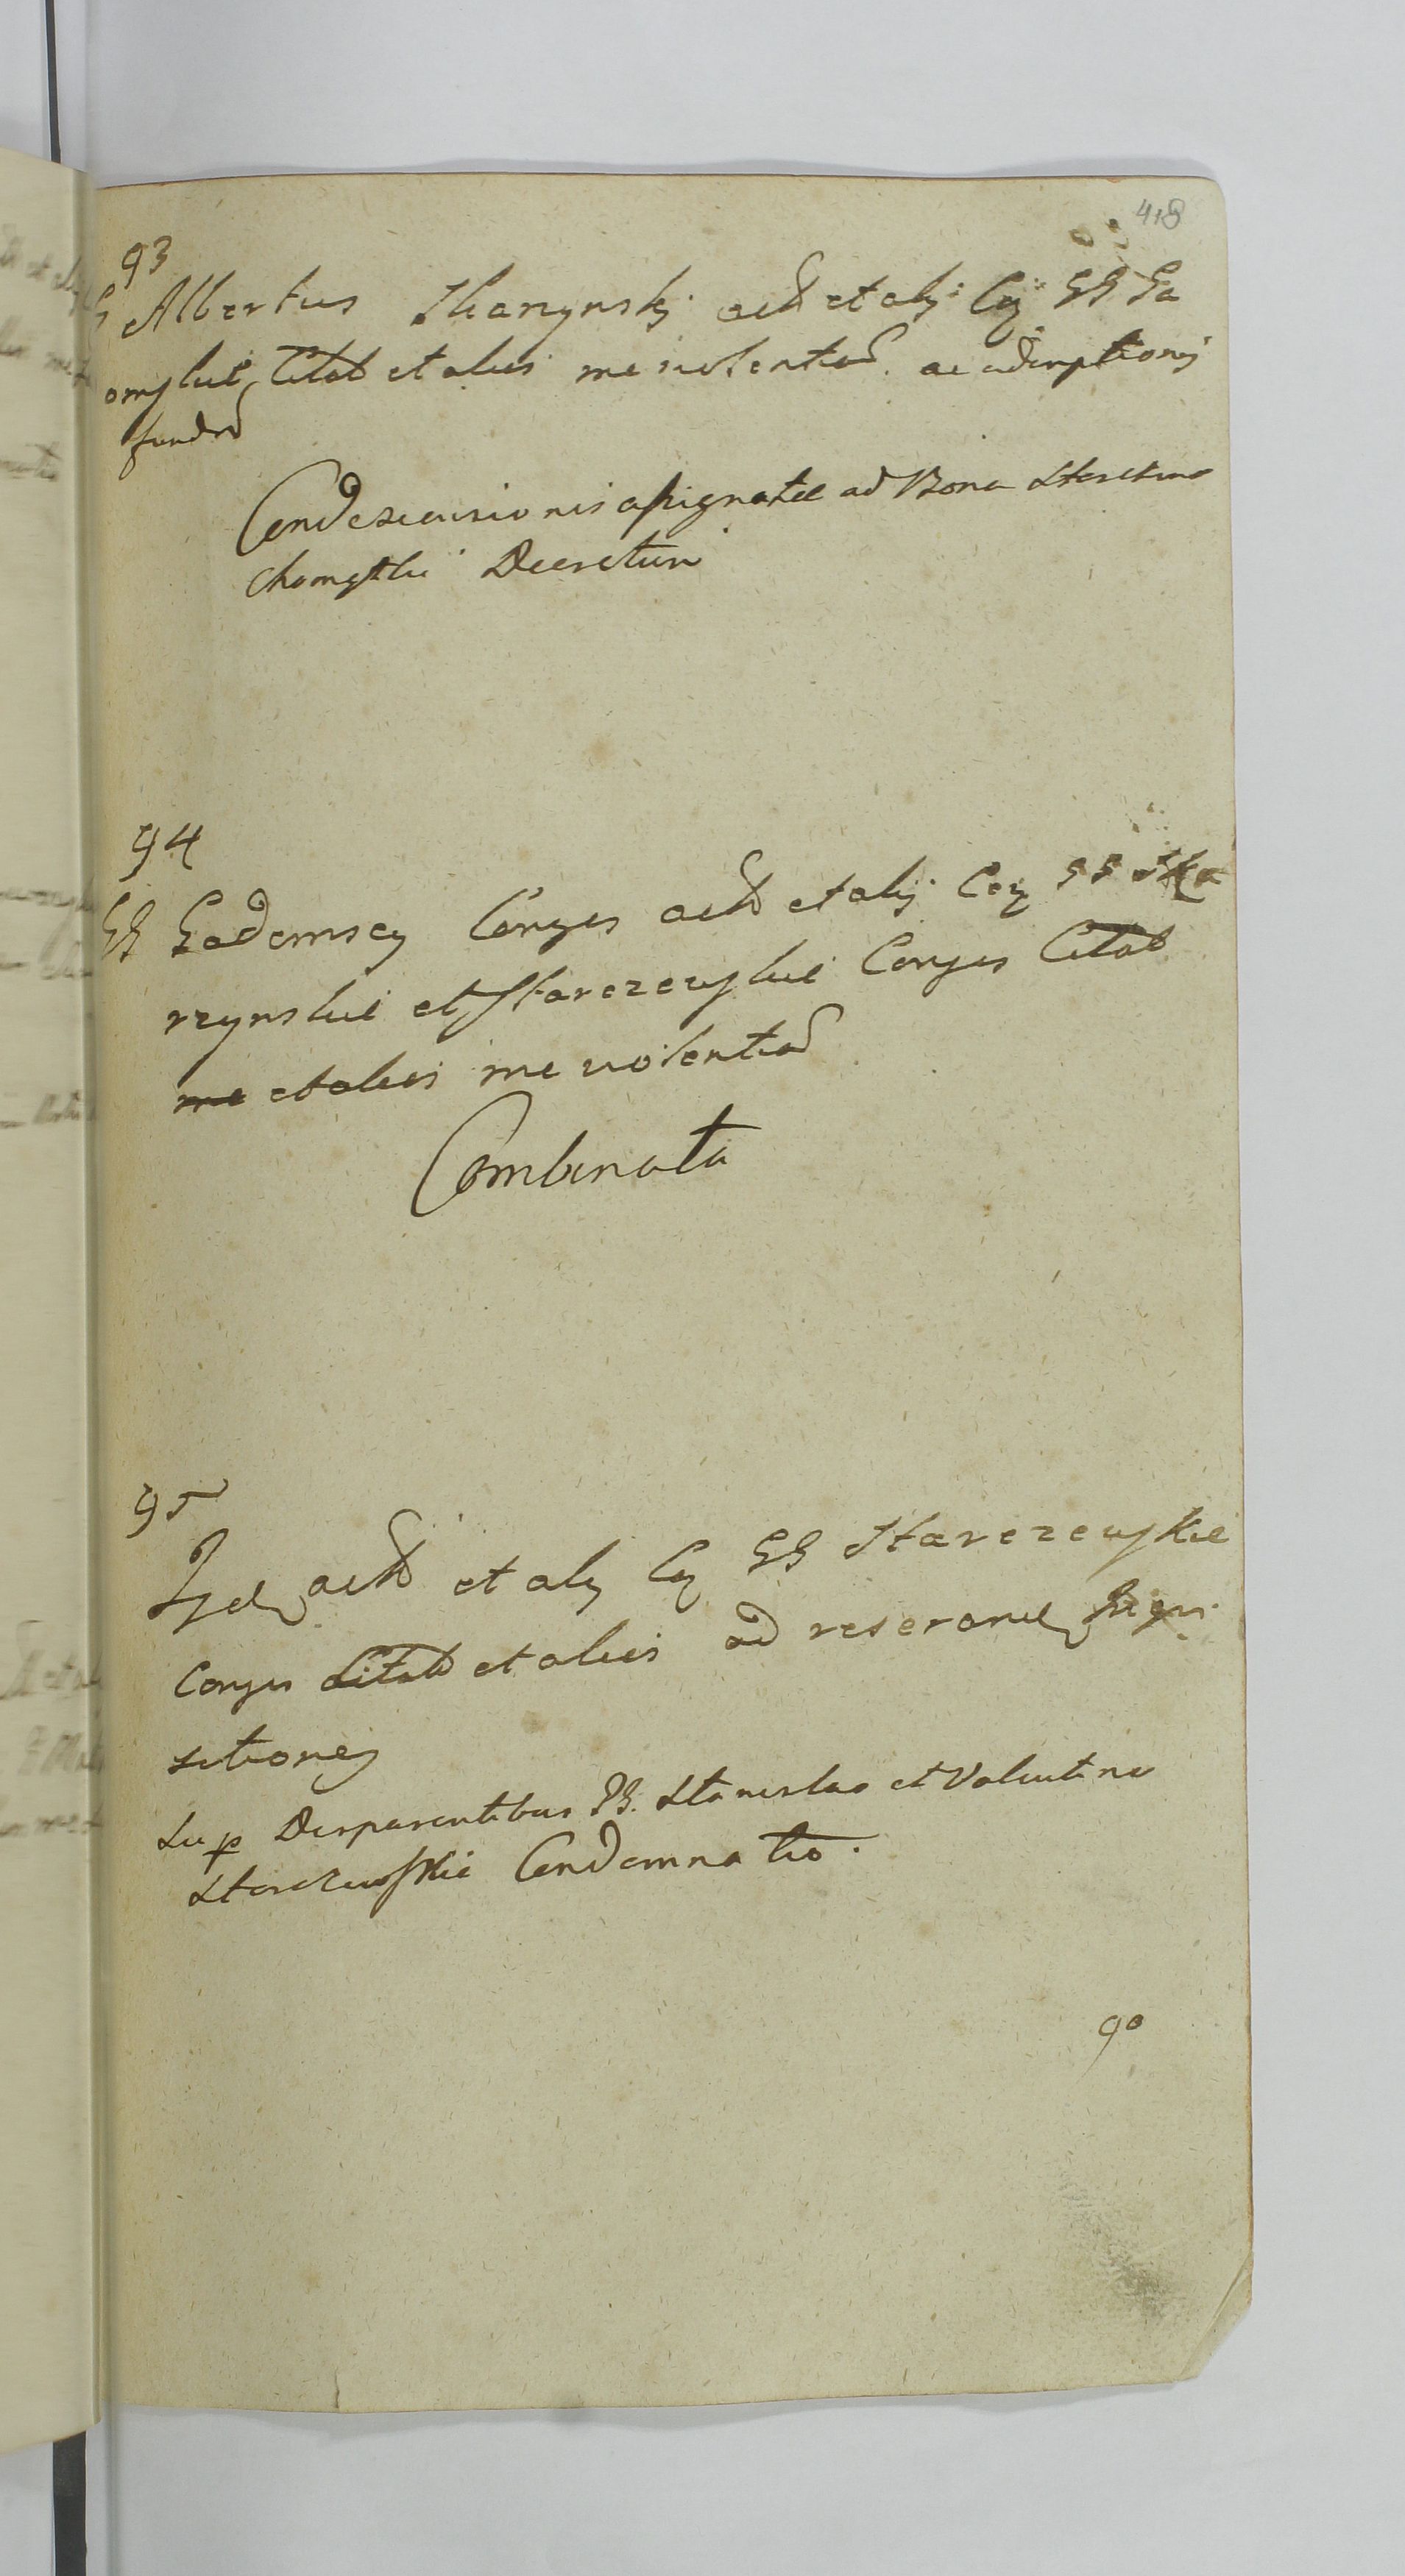 418
93
G Albertus Skarzynski actr et alij Cij GG Ga
omskie Citat et aliis me violentiar ac ademptionis
fundr
Condescensionis assignatae ad Bona Starcium
Chomątki Decretum
94
GG Gadomscy Conges actr et alij Cij GG Ska
rzynskie et Starczewskie Conges Citat
me et aliis me violentiar
Combinata
95
Iid actr et alij Cij GG Starczewskie
Conges Citat et aliis ad reserand Inqui
sitiones
Sup Disparentibus GG. Stanislao et Valentino
Starczewskie Condemnatio.
90